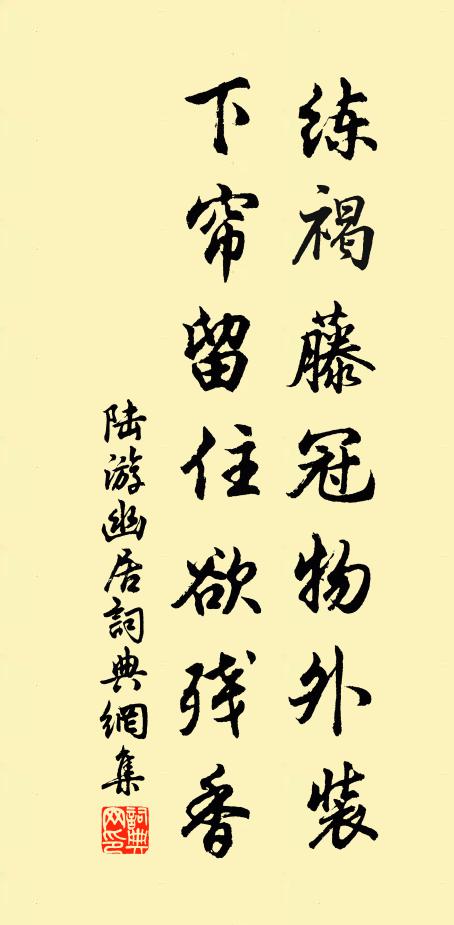 练褐藤冠物外装
下帘留住欲残香
陆游幽居詞典網集
詞典网印